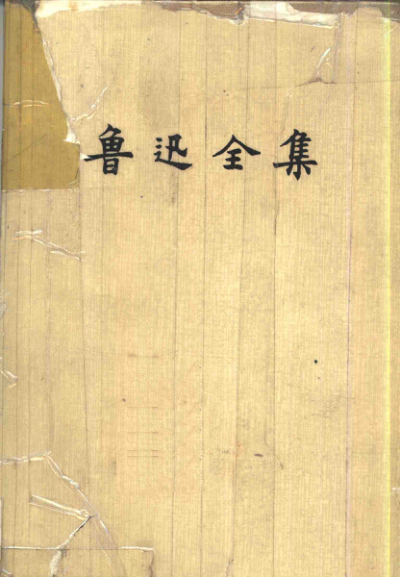 鲁迅全集